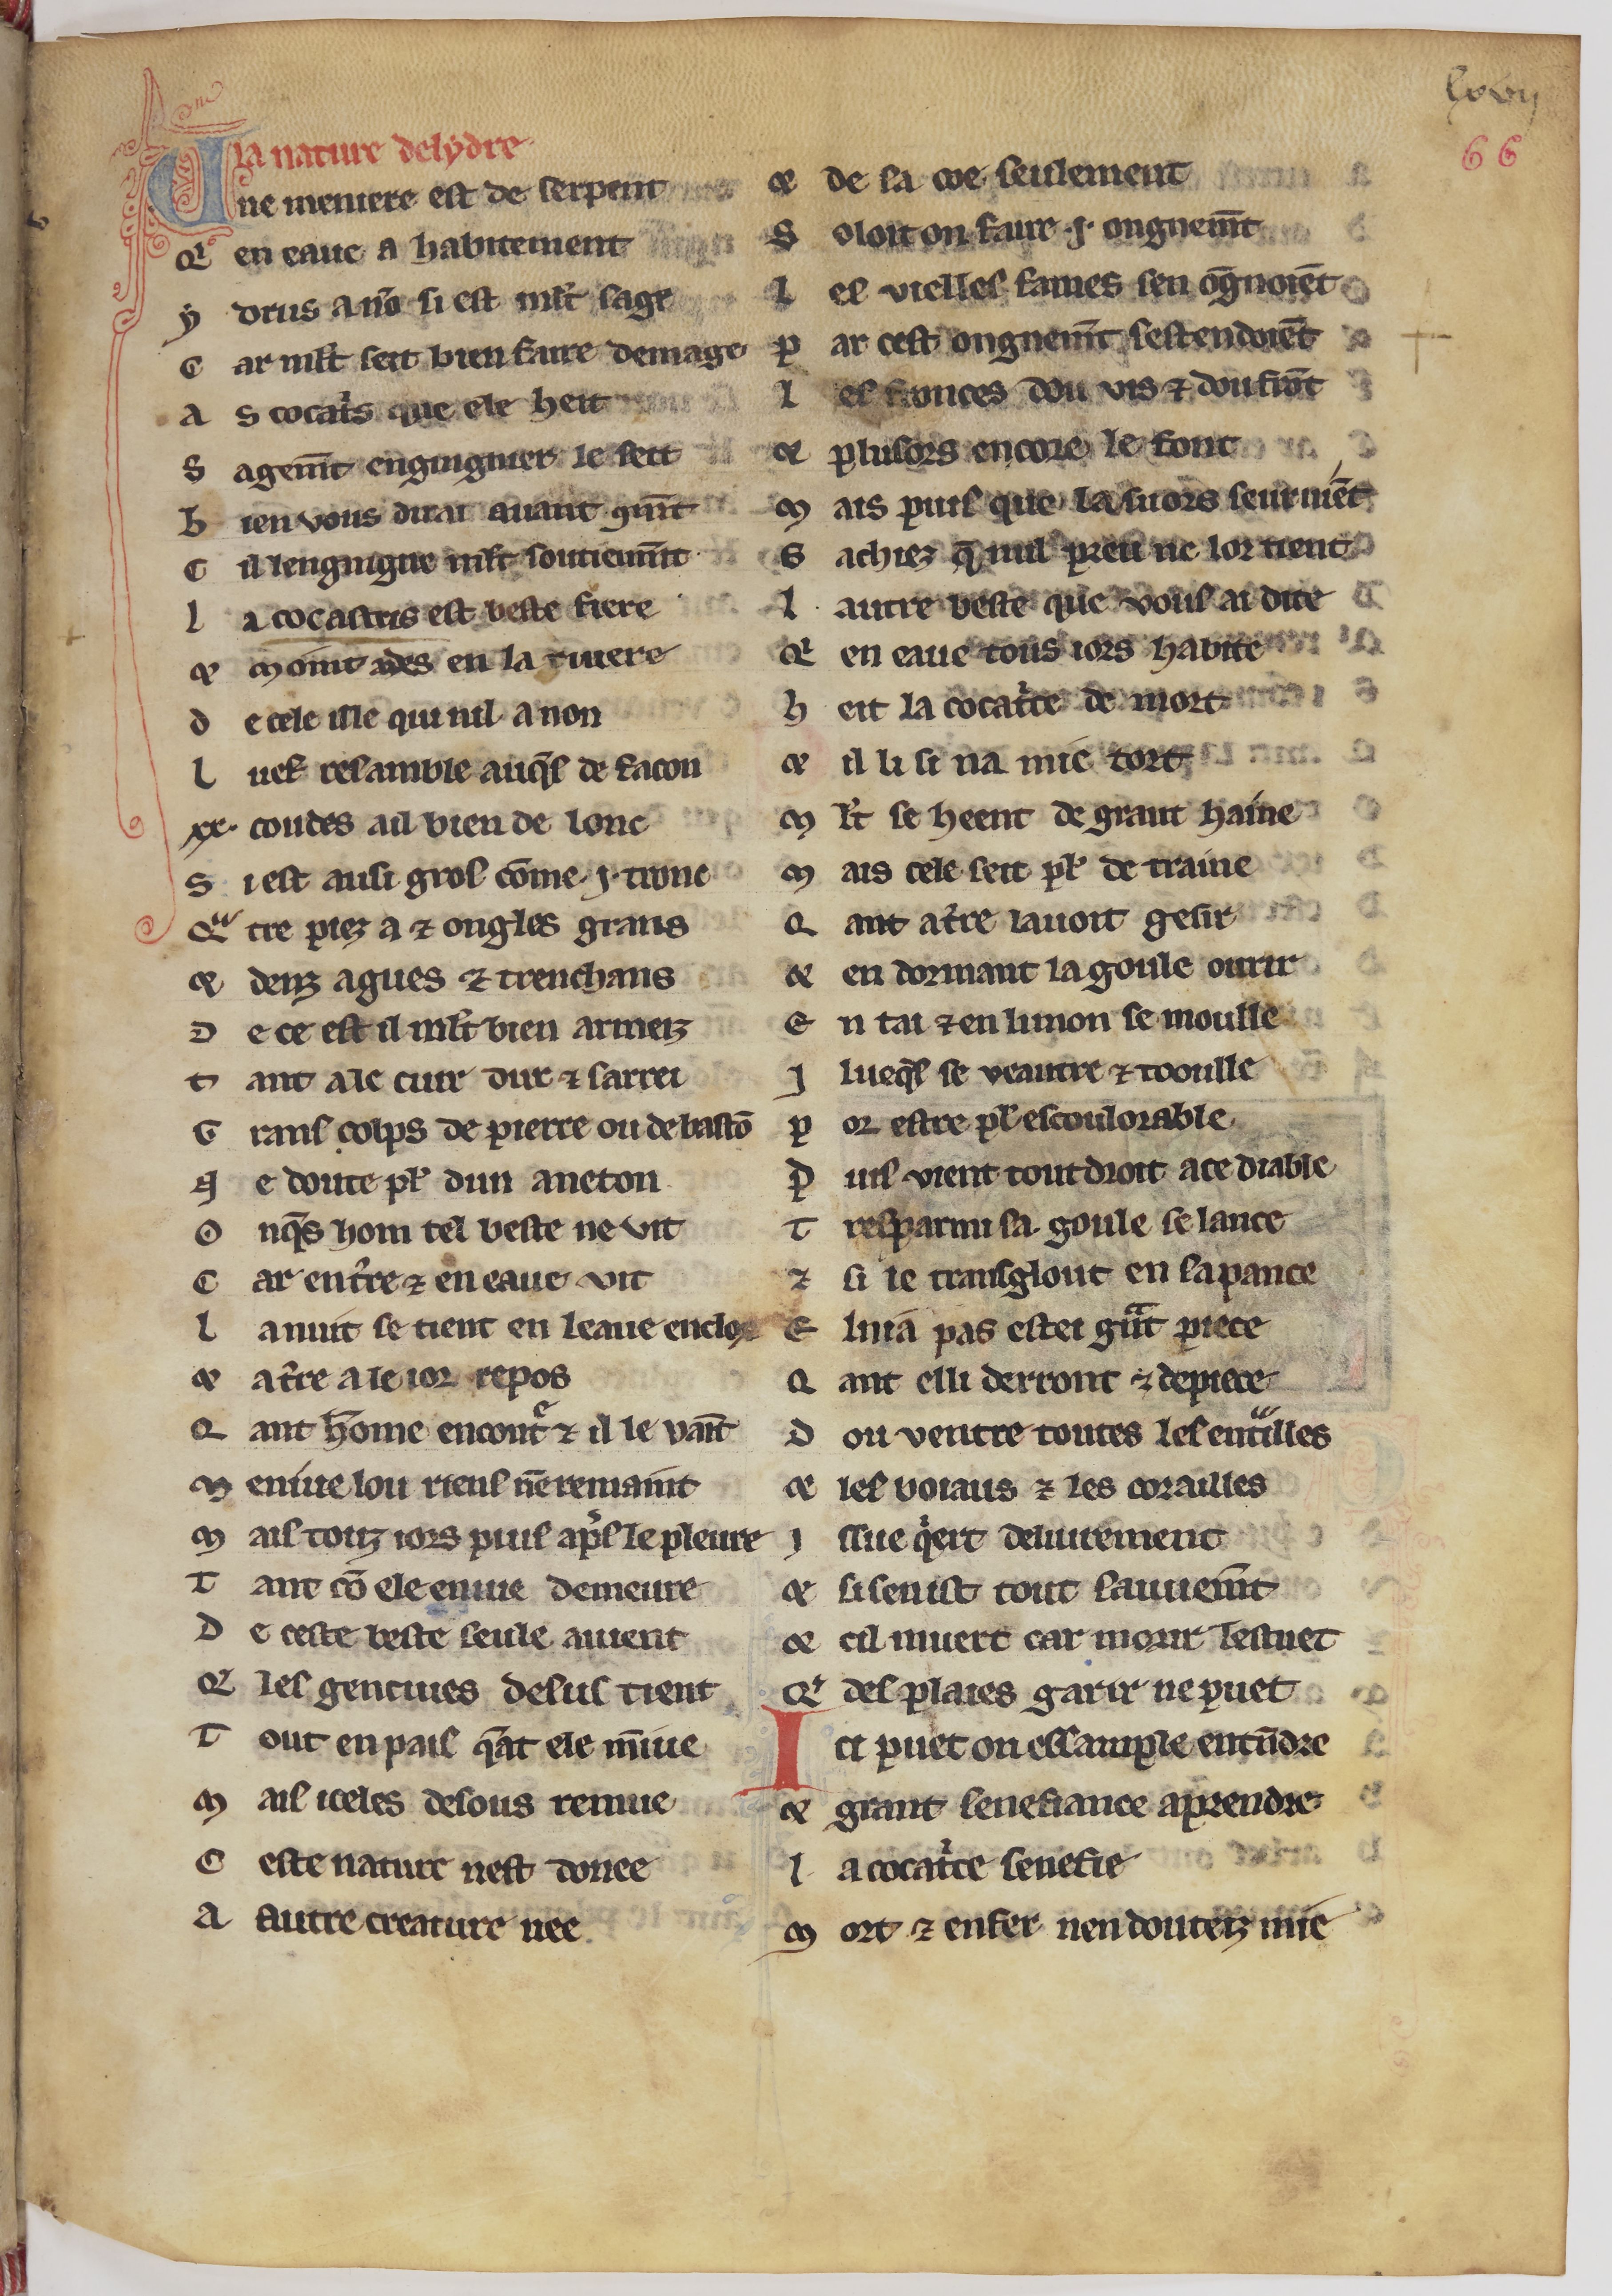 lxvij
66
la nature delydre
Une meniere est de serpent
Qi en eaue a habitement
ydrus a nõ si est ml't sage
Car ml't seit bien faire demage
As cocat's que ele heit
Sagem̃t engingnier le seit
bien vous dirai auant qm̃t
Cil lengingne ml't soutiem̃t
la cocastris est beste fiere
& moint ades en la riuere
de cele ille qui nil a non
lues resamble auq̃s de facon
xx. coudes a il bien de lonc
Si est ausi gros cõme .j. tronc
Qatre piez a ⁊ ongles grans
& denz agues ⁊ trenchans
De ce est il ml't bien armeiz
tant a le cuir dur ⁊ sarrei
Grans colps de pierre ou de bastõ
Ne doute pl' dun aneton
Onq̃s hom tel beste ne vit
Car en t're ⁊ en eaue vit
la nuit se tient en leaue enclos
& a t're a le ior repos
Qant home encont' ⁊ il le vaīt
Meniue lou riens nē remaint
Mais touz iors puis apl's le pleure
Tant cõ ele en vie demeure
De ceste beste seule auient
Qi les genciues desus tient
Tout en pais qãt ele m̃iue
Mais iceles desous remue
Ceste nature nest donee
A autre creature nee
& de sa coe seulement
Soloit on faire .j. ongnem̃t
les vielles fames sen ognoiẽt
par cest ongnem̃t sestendoiẽt
les fronces dou vis ⁊ dou frõt
& plusors encore le font
Mais puis que la suors seuruiẽt
Sachiez q̃ nul preu ne lor tient
lautre beste que vous ai dite
Qi en eaue tous iors habite
heit la cocat'ce de mort
& il li si na mie tort
Ml't se heent de grant haine
Mais cele seit pl' de traine
Qant a t're lauoit gesir
& en dormant la goule ourir
En tai ⁊ en limon se moulle
Jlueq̃s se veautre ⁊ tooulle
por estre pl' escoulorable
Puis vient tout droit a ce diable
Tres parmi sa goule se lance
⁊ si le transglout en sa pance
El ni a pas estei g̃nt piece
Qant el li derront ⁊ depiece
Dou ventre toutes les ent'illes
& les boiaus ⁊ les corailles
Jssue q'ert deliurement
& si sen ist tout sauuem̃t
& cil muert car morir lestuet
Qi des plaies garir ne puet
Ici puet on essample entñdre
& grant senefiance aprendre
la cocat'ce senefie
Mort ⁊ enfer nen douteiz mie